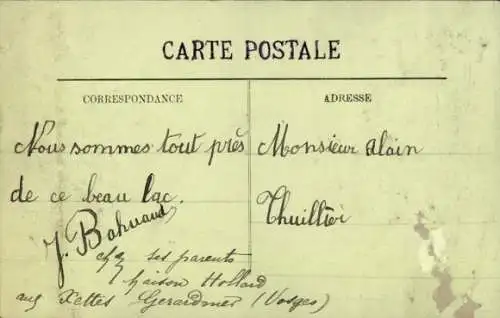 CARTE POSTALE
CORRESPONDANCE
ADRESSE
Nous sommes tout près
de ce beau lac.
J.
Monsieur Alain
Thuillier
chez ses parents
Maison Hollard
aux Xettes Gerardmer (Vosges)